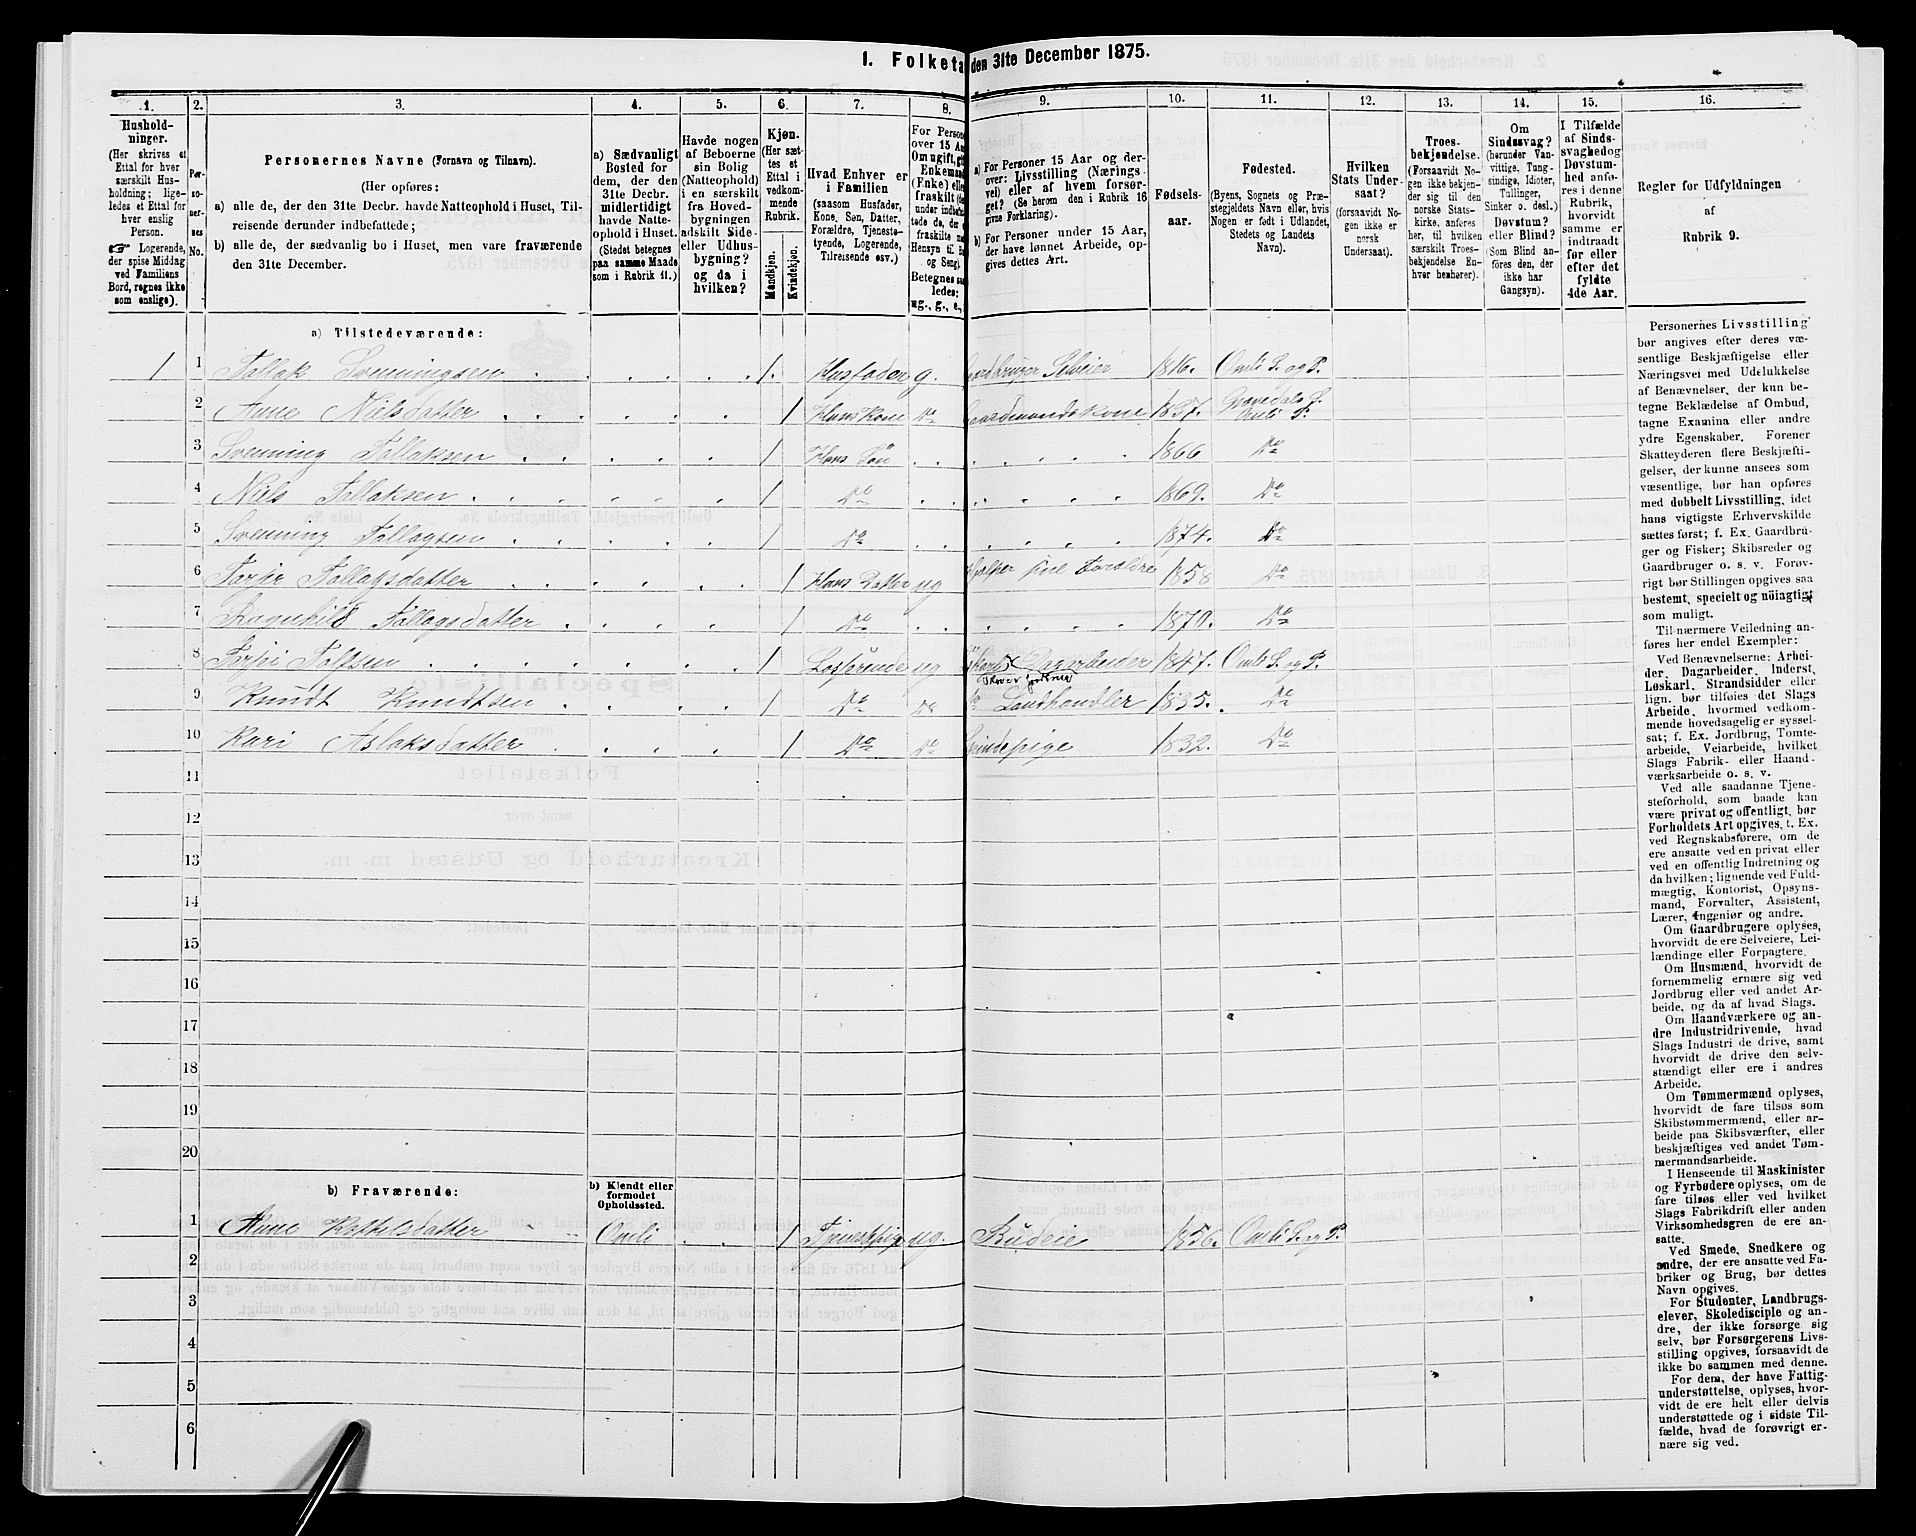 1. Folketa den 31te December 1875.
1. 2. 3. 4. 5. 6. 7. 8. 9. 10. 11. 12. 13. 14. 15. 16.
Hushold-
ninger.
(Her skrives et
Ettal for hver
særskilt Hus-
holdning; lige-
ledes et Ettal for
hver enslig
Person.
☞ Logerende,
der spise Middag
ved Familiens
Bord, regnes ikke
som enslige).
Per-
so-
ner-
nes
No.
Personernes Navne (Fornavn og Tilnavn).
(Her opføres:
a) alle de, der den 31te Decbr. havde Natteophold i Huset, Til-
reisende derunder indbefattede;
b) alle de, der sædvanlig bo i Huset, men vare fraværende
den 31te December.
a) Sædvanligt
Bosted for
dem, der den
31te Decbr.
midlertidigt
havde Natte-
ophold i Huset.
(Stedet betegnes
paa samme Maade
som i Rubrik 11.)
Havde nogen
af Beboerne
sin Bolig
(Natteophold)
i en særskilt
fra Hoved-
bygningen
adskilt Side-
eller Udhus-
bygning?
og da i
hvilken?
Kjøn.
(Her sæt-
tes et
Ettal i
vedkom-
mende
Rubrik.
Mandkjøn.
Kvindekjøn.
Hvad Enhver er
i Familien
(saasom Husfader,
Kone, Søn, Datter,
Forældre, Tjeneste-
tyende, Logerende,
Tilreisende osv.)
For Persone
over 15 Aa
Om ugift, gi
Enkemand
(Enke) elle
fraskilt (
under indbe
tede de, de
fraskilte m
Hensyn til B
og Seng).
Betegnes saa
ledes:
ug., g., e.,
a) For Personer 15 Aar og der-
over: Livsstilling (Nærings-
vei) eller af hvem forsør-
get? (Se herom den i Rubrik 16
givne Forklaring).
b) For Personer under 15 Aar,
der have lønnet Arbeide, op-
gives dettes Art.
Fødsels-
aar.
Fødested.
(Byens, Sognets og Præ-
stegjeldets Navn eller, hvis
Nogen er født i Udlandet,
Stedets og Landets
Navn).
Hvilken
Stats Under-
saat?
(forsaavidt No-
gen ikke er
norsk
Undersaat).
Troes-
bekjendelse.
(Forsaavidt No-
gen ikke bekjen-
der sig til den
norske Stats-
kirke, anføres
her, til hvilken
særskilt Troes-
bekjendelse En-
hver henhører).
Om
Sindssvag?
(herunder Van-
vittige, Tung-
sindige, Idioter,
Tullinger,
Sinker o. desl.)
Døvstum?
eller Blind?
(Som Blind an-
føres den, der
ikke har
Gangsyn).
I Tilfælde
af Sinds-
svaghed og
Døvstum-
hed anfø-
res i denne
Rubrik,
hvorvidt
samme er
indtraadt
før eller
efter det
fyldte
4de Aar.
Regler for Udfyldningen
af
Rubrik 9.
a) Tilstedeværende:
1 1 Tallak Svenningsen 1. Husfader g. Gaardbruger Selveier 1816. Omli S. og P.
2 Anne Nielsdatter 1 Hans Kone Do Gaardmandskone 1837. Gjøvedals S. Omli P.
3 Svenning Tallaksen 1 Hans Søn 1866 Do
4 Niels Tallaksen 1 Do 1869. Do
5 Svenning Tallagsen 1 Do 1874. Do
6 Torjer Tallagsdatter 1 Hans Datter ug Hjelper sine Foreldre 1858 Do
7 Ragnhild Tallagsdatter 1 Do 1870. Do
8 Torjer 1 ug Dagarbeider 1847. Omli S. og P.
9 Knudt Knudtsen 1 Do Do Landhandler 1835. Do
10 Kari Aslaksdatter 1 Do Do 1832. Do
11
12
13
14
15
16
17
18
19
20
b) Fraværende:
b) Kjendt eller
formodet
Opholdssted.
1 Anne Omli 1 Tjenestpige ug. Budeie 1856. Omli S. og P.
2
3
4
5
6
Personernes Livsstilling
bør angives efter deres væ-
sentlige Beskjæftigelse eller
Næringsvei med Udelukkelse
af Benævnelser, der kun be-
tegne Beklædelse af Ombud,
tagne Examina eller andre
ydre Egenskaber. Forener
Skatteyderen flere Beskjæfti-
gelser, der kunne ansees som
væsentlige, bør han opføres
med dobbelt Livsstilling, idet
hans vigtigste Erhvervskilde
sættes først; f. Ex. Gaardbru-
ger og Fisker; Skibsreder og
Gaardbruger o. s. v. Forøv-
rigt bør Stillingen opgives saa
bestemt, specielt og nöiagtigt
som muligt.
Til nærmere Veiledning an-
føres her endel Exempler:
Ved Benævnelserne: Arbei-
der, Dagarbeider, Inderst,
Løskarl, Strandsidder eller
lign. bør tilføies det Slags
Arbeide, hvormed vedkom-
mende hovedsagelig er syssel-
sat; f. Ex. Jordbrug, Tomte-
arbeide, Veiarbeide, hvilket
Slags Fabrik- eller Haand-
værksarbeide o. s. v.
Ved alle saadanne Tjene-
steforhold, som baade kan
være privat og offentligt, bør
Forholdets Art opgives, t. Ex.
ved Regnskabsførere, om de
ere ansatte ved en privat eller
ved en offentlig Indretning og
da hvilken; lignende ved Fuld-
mægtig, Kontorist, Opsyns-
mand, Forvalter, Assistent,
Lærer, Ingeniør og andre.
Om Gaardbrugere oplyses,
hvorvidt de ere Selveiere, Lei-
lændinge eller Forpagtere.
Om Husmænd, hvorvidt de
fornemmelig ernære sig ved
Jordbrug eller ved andet Ar-
beide, og da af hvad Slags.
Om Haandværkere og an-
dre Industridrivende, hvad
Slags Industri de drive, samt
hvorvidt de drive den selv-
stændigt eller ere i andres
Arbeide.
Om Tømmermænd oplyses,
hvorvidt de fare tilsøs som
Skibstømmermænd, eller ar-
beide paa Skibsværfter, eller
beskjæftiges ved andet Tøm-
mermandsarbeide.
I Henseende til Maskinister
og Fyrbødere oplyses, om de
fare tilsøs eller ved hvilket
Slags Fabrikdrift eller anden
Virksomhedsgren de ere an-
satte.
Ved Smede, Snedkere og
andre, der ere ansatte ved Fa-
briker og Brug, bør dettes
Navn opgives.
For Studenter, Landbrugs-
elever, Skoledisciple og an-
dre, der ikke forsørge sig
selv, bør Forsørgerens Livs-
stilling opgives, forsaavidt de
ikke bo sammen med denne.
For dem, der have Fattig-
understøttelse, oplyses, hvor-
vidt de ere helt eller delvis
understøttede og i sidste Til-
fælde, hvad de forøvrigt er-
nære sig ved.